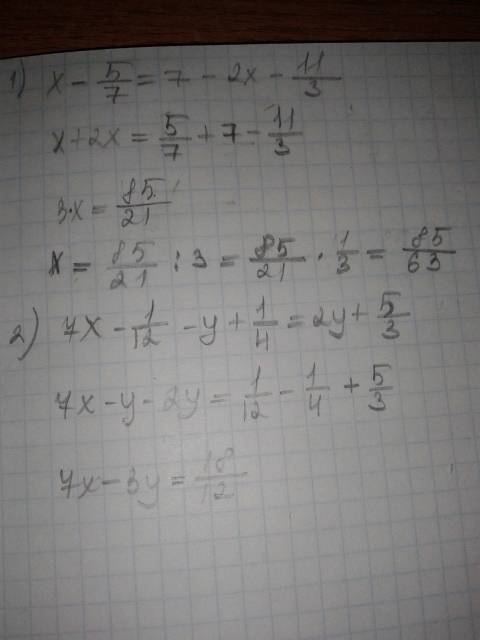 1) x - 5/7 = 7 - 2x - 11/3
x + 2x = 5/7 + 7 - 11/3
3·x = 85/21
x = 85/21 : 3 = 85/21 · 1/3 = 85/63
2) 7x - 1/12 - y + 1/4 = 2y + 5/3
7x - y - 2y = 1/12 - 1/4 + 5/3
7x - 3y = 18/12